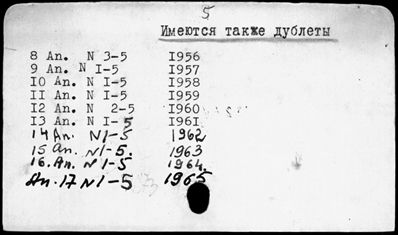 5
Имеются также дублеты
8 An. N 3-5 I956
9 An. N I-5 I957
IO An. N I-5 I958
II An. N I-5 I959
I2 An. N 2-5 I960
I3 An. N I-5 I96I
14 An. N 1-5 1962
15 An. N 1-5. 1963
16. An. N 1-5 1964
An. 17 N 1-5 1965